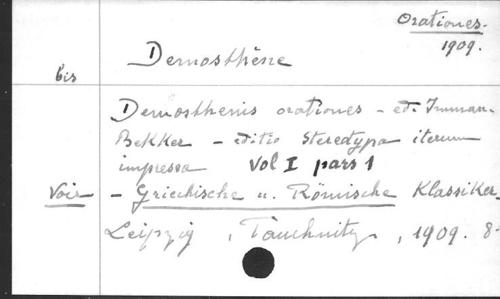 Orationes.
1909.
bis
Demosthène
Demosthenis orationes - ed. Imman.
Bekker - editio stereotypa iterum
impressa Vol I pars 1
Voir - Griechische u. Römische Klassiker
Leipzig, Tauchnitz, 1909. 8-